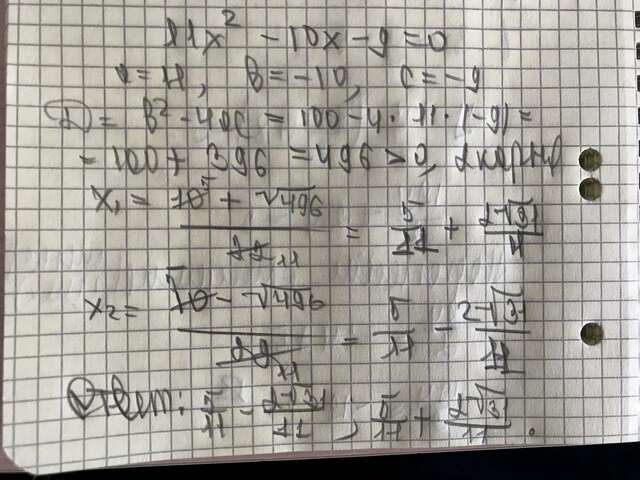 11x² - 10x - 9 = 0
a = 11, b = -10, c = -9
D = b² - 4ac = 100 - 4 · 11 · (-9) =
= 100 + 396 = 496 > 0, 2 корня
x₁ = (10 + √496)/22 = 5/11 + 2√31/11
x₂ = (10 - √496)/22 = 5/11 - 2√31/11
Ответ: 5/11 - 2√31/11 ; 5/11 + 2√31/11 .